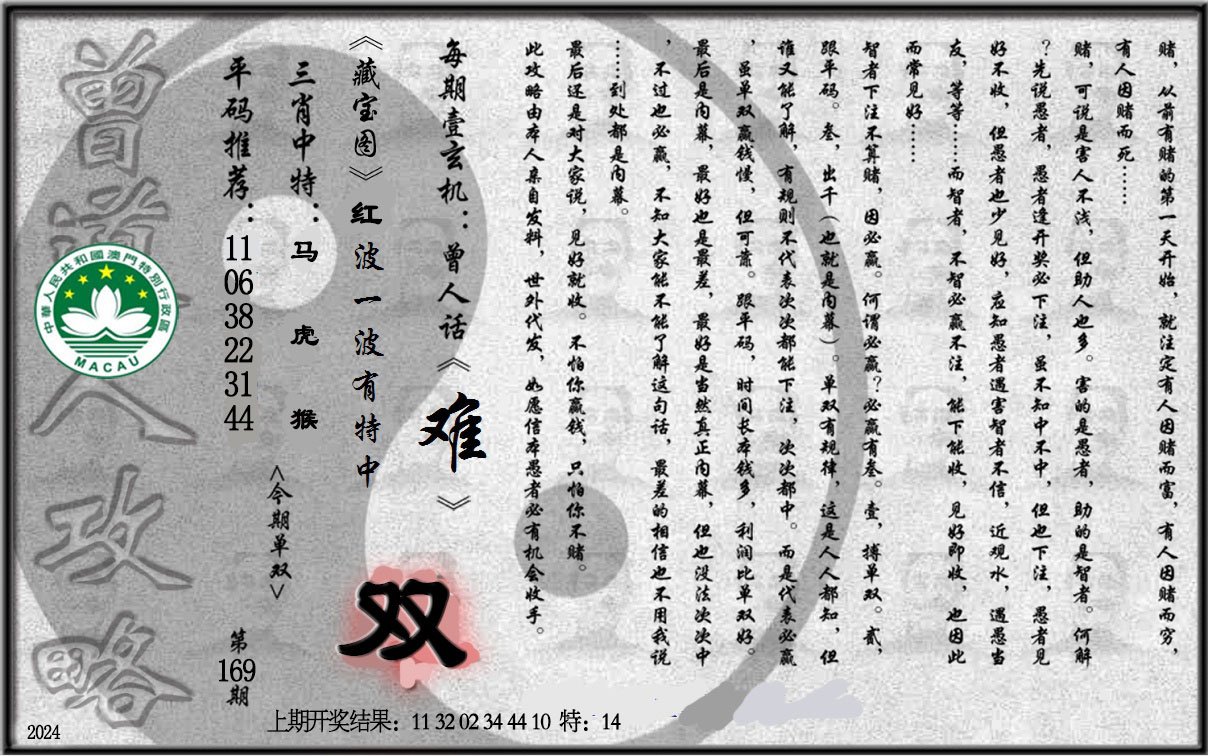 赌，从前有赌的第一天开始，就注定有人因赌而富，有人因赌而穷，
有人因赌而死……
赌，可说是害人不浅，但助人也多。害的是愚者，助的是智者。何解
？先说愚者，愚者逢开奖必下注，虽不知中不中，但也下注，愚者见
好不收，但愚者也少见好，应知愚者遇害智者不信，近观水，遇愚当
友，等等……而智者，不智必赢不注，能下能收，见好即收，也因此
而常见好……
智者下注不算赌，因必赢。何谓必赢？必赢有叁。壹，搏单双。贰，
跟平码。叁，出千（也就是内幕）。单双有规律，这是人人都知，但
谁又能了解，有规则不代表次次都能下注，次次都中。而是代表必赢
，虽单双赢钱慢，但可靠。跟平码，时间长本钱多，利润比单双好。
最后是内幕，最好也是最差，最好是当然真正内幕，但也没法次次中
，不过也必赢，不知大家能不能了解这句话，最差的相信也不用我说
……到处都是内幕。
最后还是对大家说，见好就收。不怕你赢钱，只怕你不赌。
此攻略由本人亲自发料，世外代发，如愿信本愚者必有机会收手。
每期壹玄机：曾人话《难》
《藏宝图》红波一波有特中
双
三肖中特：马 虎 猴
<今期单双>
平码推荐：11 06 38 22 31 44
第169期
曾道人攻略
中華人民共和國澳門特別行政區
MACAU
上期开奖结果：11 32 02 34 44 10 特：14
2024